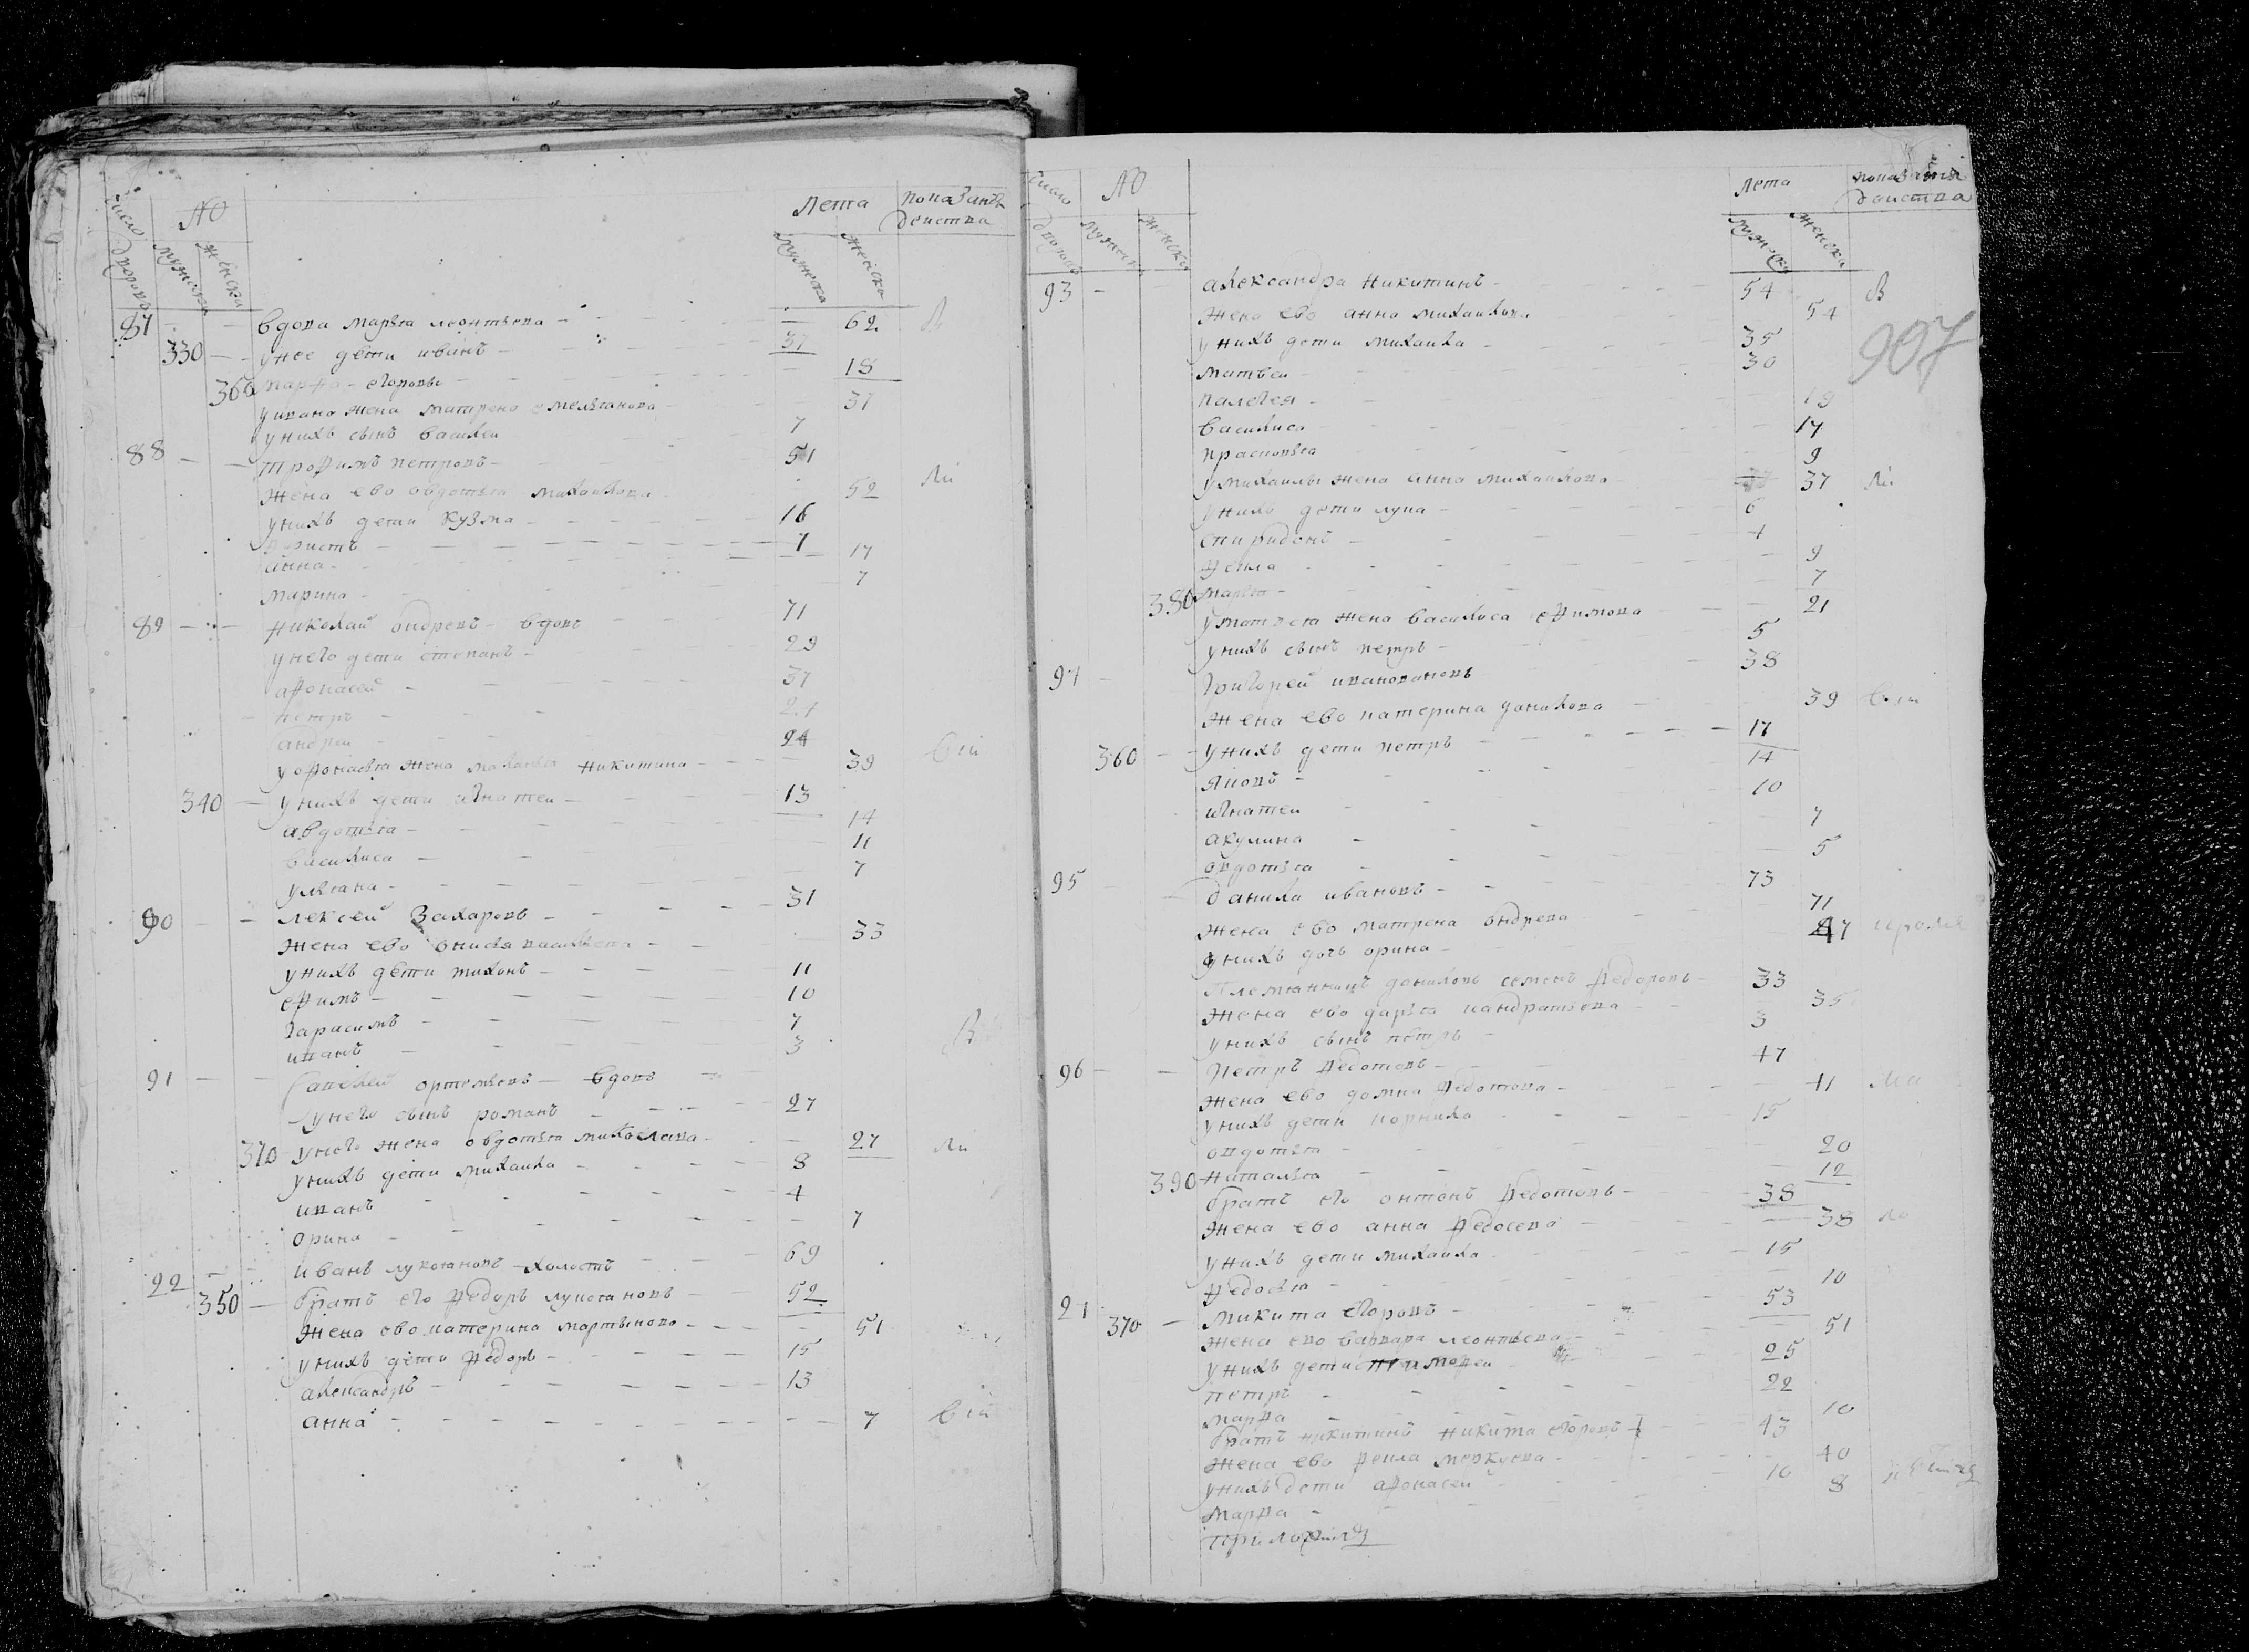 Число дворовъ
№
мужеска
женска
Лета
мужеска
женска
показание
действа
87 - - вдова марья леонтьева - - 62
330 - - унее дети иванъ - 37
360 марфа - егоровы - - 18
уивана жена матрена емельянова - - 37
унихъ сынъ василей 7
88 - - трофимъ петровъ - 51
жена ево овдотья михаилова - 52
унихъ дети кузма - 16
- 7
анна - - 17
марина - 7
89 - - николай ондревъ - вдовъ - 71
унего дети степанъ - 29
афонасей - 37
петръ - 24
андреи - 24
уофонасья жена маланья никитина - - 39
340 - унихъ дети игнатеи - 13
авдотья - - 14
василиса - - 11
ульяна - - 7
90 - - лексей захаровъ - 31
жена ево васильева - - 33
унихъ дети тихонъ - 11
ефимъ - 10
гарасимъ - 7
иванъ - 3
91 - - ортемьевъ - вдовъ -
унего сынъ романъ - 27
370 унего жена овдотья михаелава - - 27
унихъ дети михаила - 8
иванъ - 4
орина - - 7
22 - - иванъ лукояновъ - холостъ - 69
350 - братъ его федоръ лукояновъ - 52
жена ево катерина мартынова - - 51
унихъ дети федоръ - 15
александръ - 13
анна - - 7
число дворовъ
№
мужеска
женска
лета
мужеска
женска
показания
действа
93 - - александра никитинъ - 54
жена ево анна михаилова 54
907
унихъ дети михаила - 35
матвеи - 30
палегея - 19
василиса - 17
прасковья - 9
умихаилы жена анна михаилова - 37
унихъ дети лука - 6
спиридонъ - 4
фекла - - 9
380 марья - 7
уматвея жена василиса ефимова - - 21
унихъ сынъ петръ - 5
94 - григорей ивановановъ - 38
жена ево катерина данилова - 39
360 - - унихъ дети петръ - 17
яковъ - 14
игнатеи - 10
акулина - - 7
овдотья - - 5
95 - - данила ивановъ - 73
жена ево матрена ондрева - 71
унихъ дочь орина - 47
племянникъ даниловъ семенъ федоровъ - 33
жена ево дарья кандратьева - 35
унихъ сынъ петръ - 3
96 - - петръ федотовъ - 47
жена ево домна федотова - - 41
унихъ дети корнила - 15
овдотья - 20
390 наталья - - 12
братъ его онтонъ федотовъ - 38
жена ево анна федосева - - 38
унихъ дети михаила 15
федосья - - 10
21 370 - микита егоровъ - 53
жена ево варвара леонтьева - - 51
унихъ дети 25
петръ - 22
марфа - 10
братъ никитинъ никита егоровъ - 43
жена ево фекла меркуева - 40
унихъ дети афонасеи - 10
марфа - 8